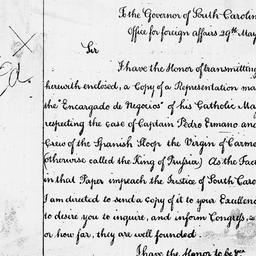 To the Governor of South Carolin
Office for foreign affairs 29th May
Sir
I have the Honor of transmitting
herewith enclosed, a Copy of a Representation ma
the "Encargado de Negocios" of his Catholic Ma
respecting the case of Captain Pedro Ermano and
Crew of the Spanish Sloop the Virgin of Carme
(otherwise called the King of Prussia) As the Fact
in that Paper impeach the Justice of South Caro
I am directed to send a Copy of it to your Excellen
to desire you to inquire, and inform Congress,
or how far, they are well founded.
I have the Honor to be &ca